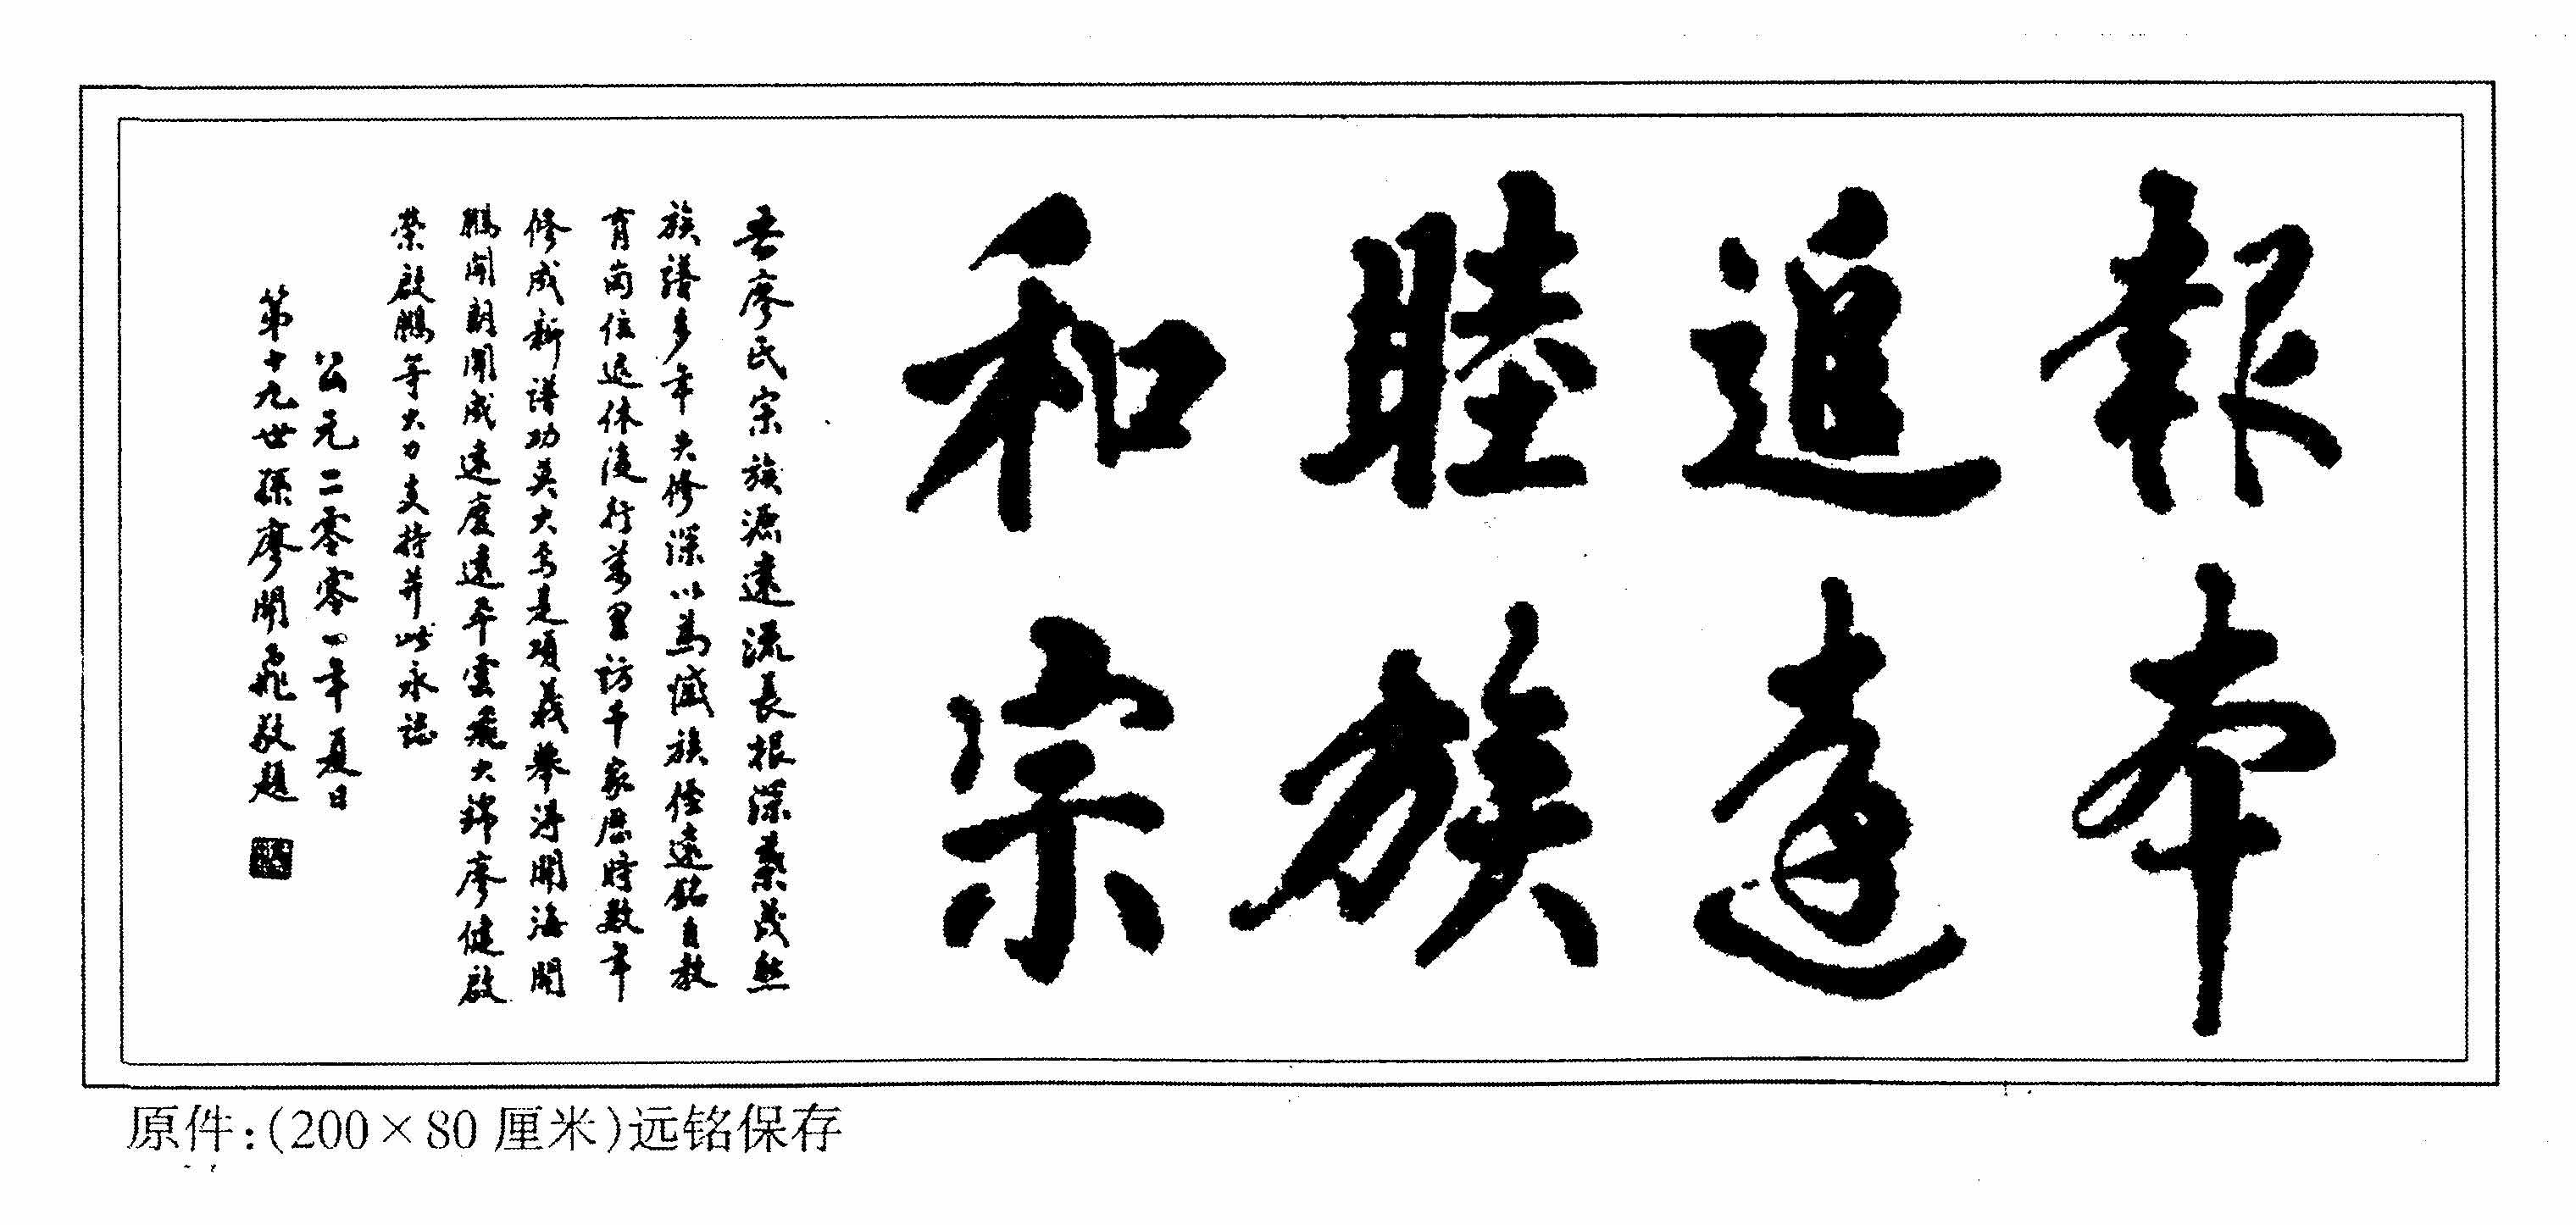 報本
追遠
睦族
和宗
吾廖氏宗族源遠流長根深葉茂然
族譜多年失修深以為憾族侄遠銘自教
育崗位退休後行萬里訪千家歷時數年
修成新譜功莫大焉是項義舉得開海開
鵬開朗開成遠慶遠平雲飛大錦廖健啟
榮啟鵬等大力支持并此永誌
公元二零零四年夏日
第十九世孫廖開飛敬題
原件:(200×80 厘米)远铭保存